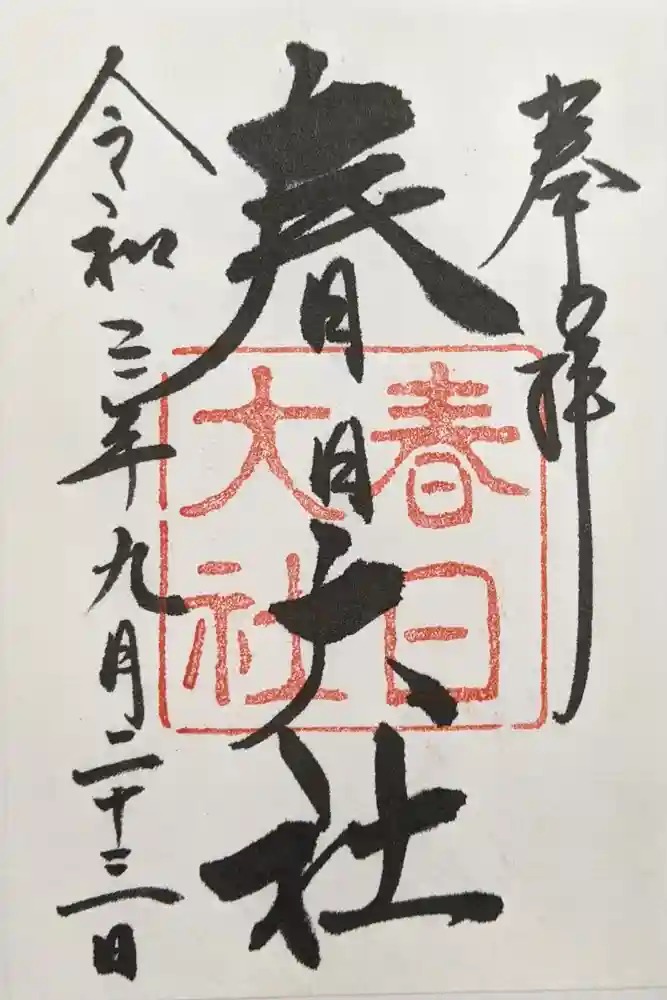 奉拝
春日大社
令和三年九月二十三日
春日
大社